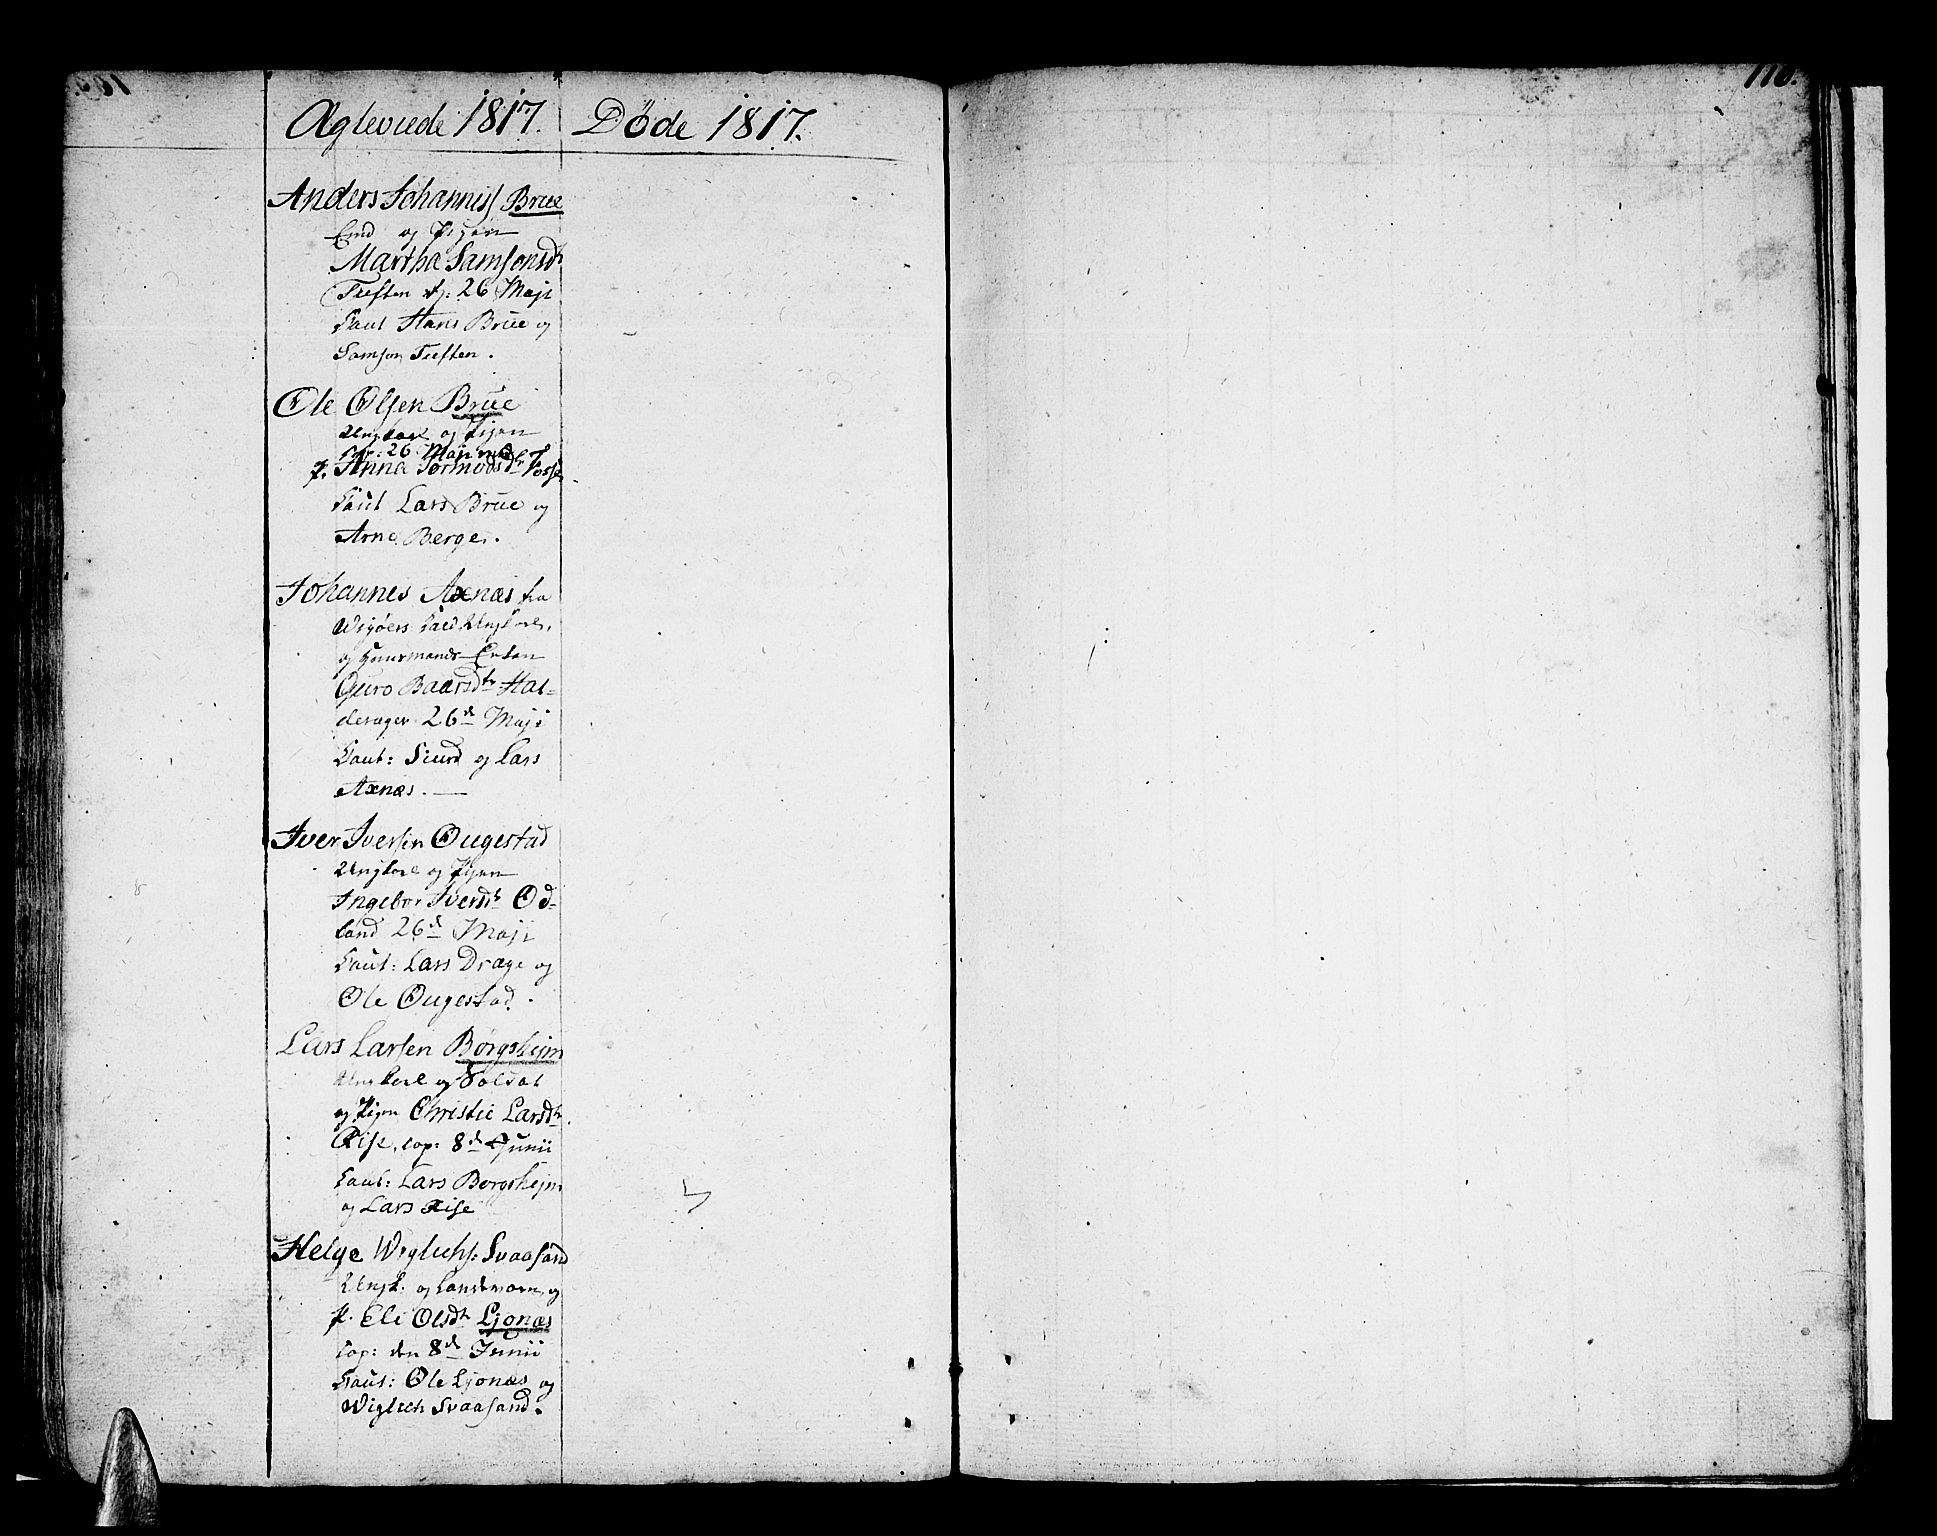 110.
Ægteviede 1817.
Döde 1817.
Anders Johanness Brue
Emd og Pigen
Martha Samsonsdr
Tveften 26 Maji
Caut Hans Brue og
Samson Tveften.
Ole Olsen Brue
Ungkarl og Pigen
26 Maji med
p. Anna Tormodsdr Fosse
Caut Lars Brue og
Arne Berge.
Johannes Axnæs fra
Wigöers Ungkarl,
og Huusmands Enken
Guro Baarsdr Hal-
derager 26d Maji
Caut: Siurd og Lars
Axnæs.
Iver Iversen Ougestad
Ungkarl og Pigen
Ingebor Iversdr Od-
land 26d Maji
Caut: Lars Drage og
Ole Ougestad.
Lars Larsen Børgshejm
Ungkarl og Soldat
og Pigen Christie Larsdr
Rise, cop: 8d Junii
Caut: Lars Borgshejm
og Lars Rise
Helge Wiglichs: Svaasand
Ungk: og Landeværn, og
p. Eli Olsdr Ljonæs
cop: den 8d Junii
Caut: Ole Ljonæs og
Wiglich Svaasand.